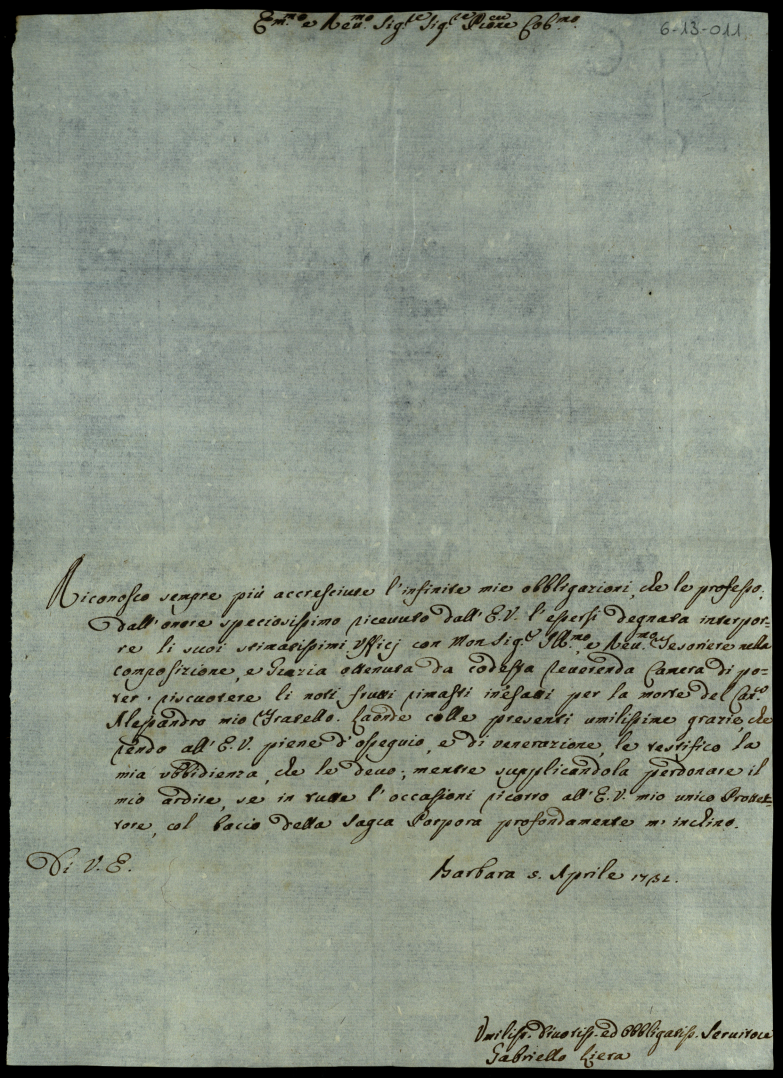 Em.mo e Rev.mo Sig.re Sig.re P.ron Col.mo
6-13-011
Riconosco sempre più accresciute l'infinite mie obbligazioni, che le professo,
dall'onore speciosissimo ricevuto dall'E.V. l'essersi degnata interpor=
re li suoi stimatissimi Ufficj con Mon Sig.r Ill.mo e Rev.mo Tesoriere nella
composizione, e Grazia ottenuta da codesta Reverenda Camera di po=
ter riscuotere li noti frutti rimasti inesatti per la morte del
Alessandro mio Fratello. Laonde colle presenti umilissime grazie, che
rendo all'E.V. piene d'ossequio, e di venerazione, le testifico la
mia ubbidienza, che le devo; mentre supplicandola perdonare il
mio ardire, se in tutte l'occasioni ricorro all'E.V. mio unico Protet=
tore, col baccio della Sagra Porpora profondamente m'inclino.
Di V.E.
Barbara 5. Aprile
Umiliss. Divotiss. ed Obbligatiss. Servitore
Gabriello Liera